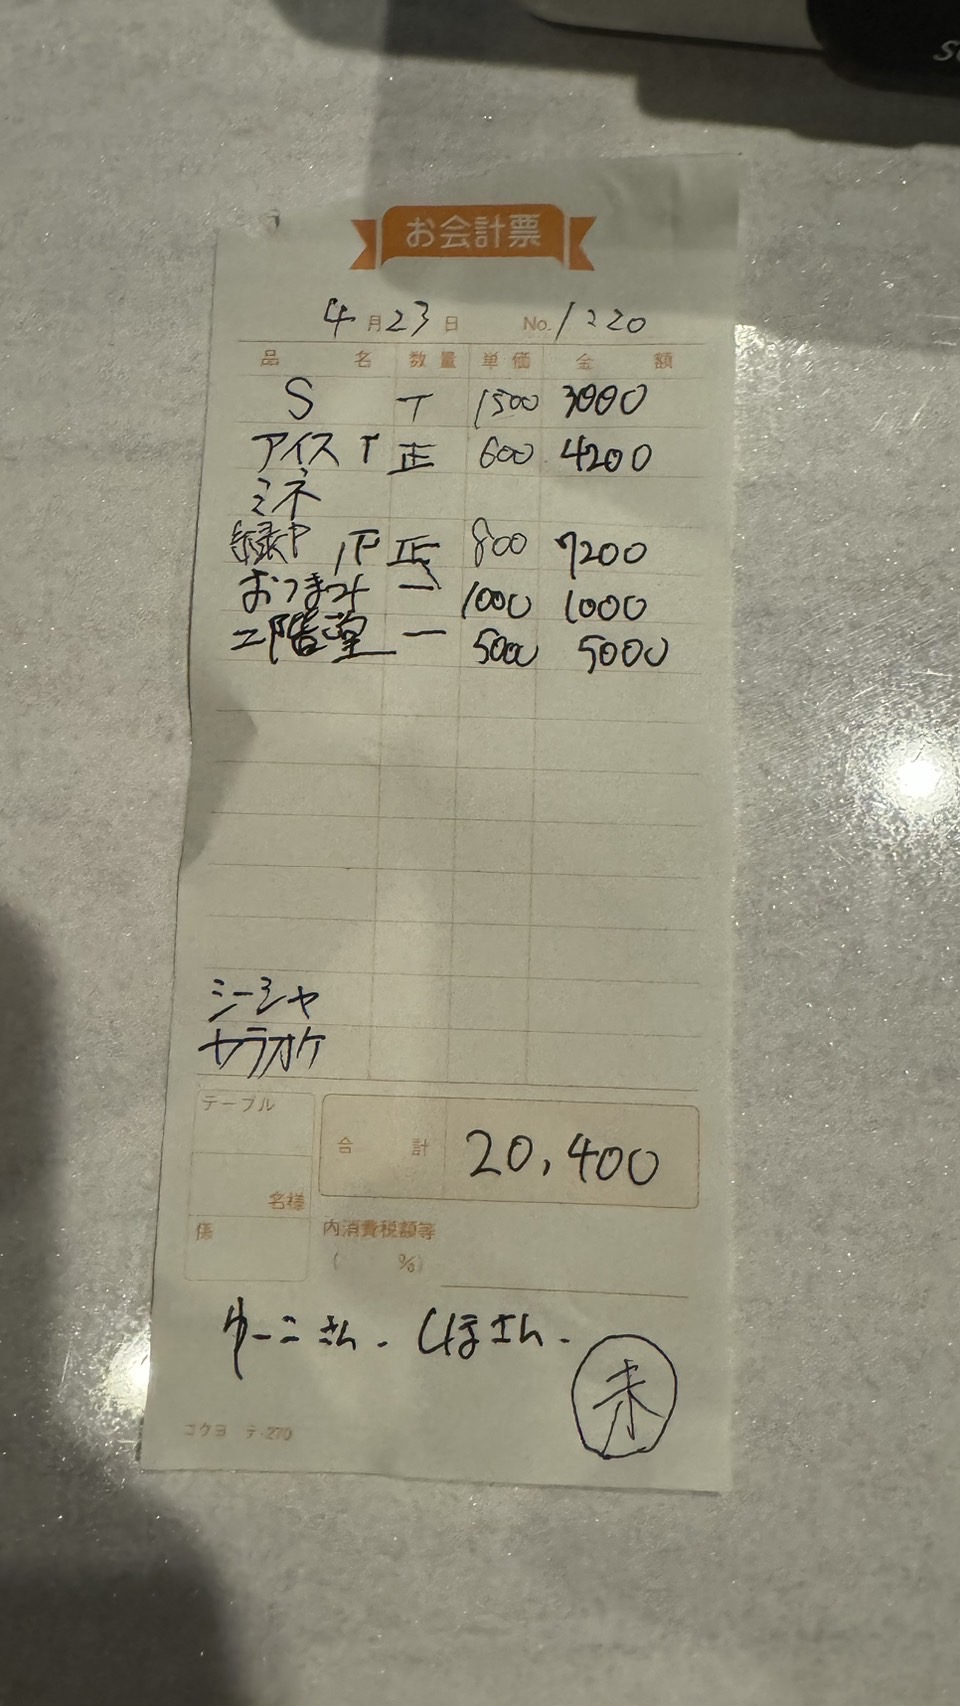 お会計票
4月23日 No.1220
品名 数量 単価 金額
S 丅 1500 3000
アイス 丅 正 600 4200
ミネ
緑 下 正 800 7200
おつまみ 一 1000 1000
二階堂 一 5000 5000
シーシャ
カラオケ
テーブル
合計 20,400
名様
係 内消費税額等
( %)
ゆーこさん. しほさん.
未
コクヨ テ-270